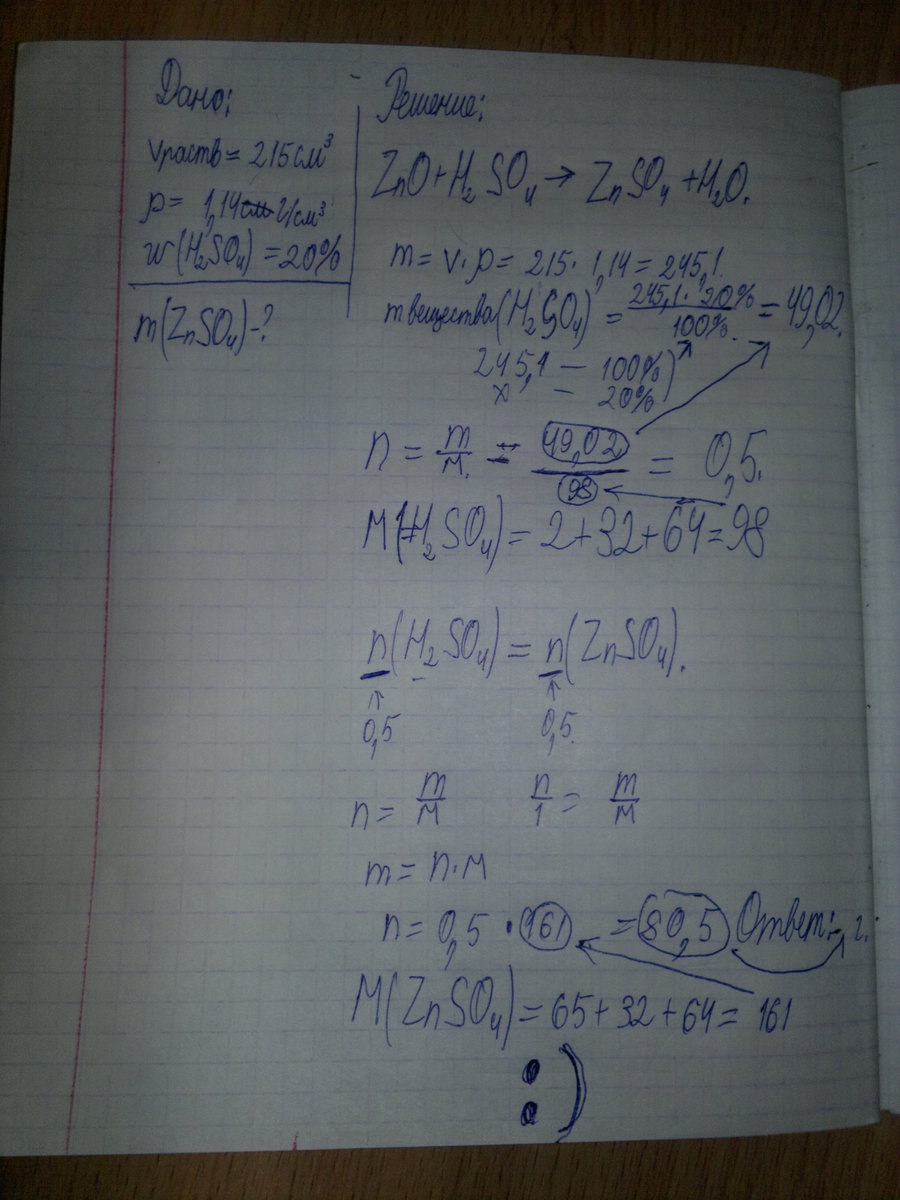 Дано:
Vраств = 215 см³
p = 1,14 г/см³
w(H₂SO₄) = 20%
m(ZnSO₄)-?
Решение:
ZnO + H₂SO₄ → ZnSO₄ + H₂O.
m = v · p = 215 · 1,14 = 245,1.
m вещества (H₂SO₄) = 245,1 · 20% / 100% = 49,02.
245,1 — 100%
x — 20%
n = m/M = 49,02 / 98 = 0,5.
M(H₂SO₄) = 2+32+64 = 98
n(H₂SO₄) = n(ZnSO₄).
↑ ↑
0,5 0,5.
n = m/M n/1 = m/M
m = n · M
n = 0,5 · 161 = 80,5 Ответ: г.
M(ZnSO₄) = 65+32+64 = 161
:)